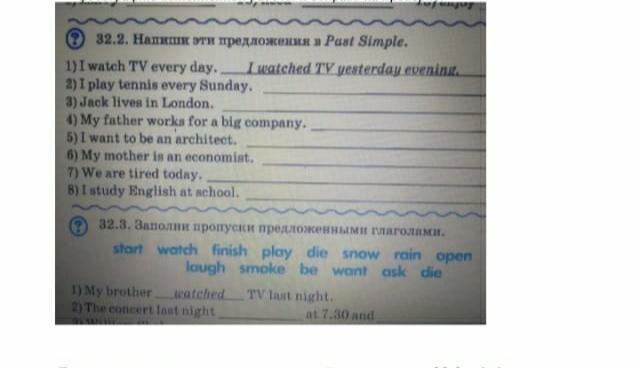 32.2. Напиши эти предложения в Past Simple.
1) I watch TV every day. I watched TV yesterday evening.
2) I play tennis every Sunday.
3) Jack lives in London.
4) My father works for a big company.
5) I want to be an architect.
6) My mother is an economist.
7) We are tired today.
8) I study English at school.
32.3. Заполни пропуски предложенными глаголами.
start watch finish play die snow rain open
laugh smoke be want ask die
1) My brother watched TV last night.
2) The concert last night at 7.30 and